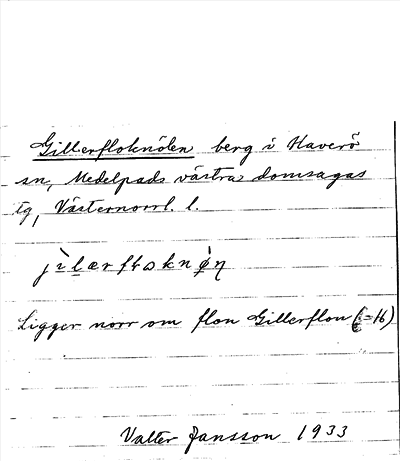 Gillerfloknölen berg i Haverö
sn, Medelpads västra domsagas
tg, Västernorrl. l.
Ligger norr om flon Gillerflon (=16)
Valter Jansson 1933